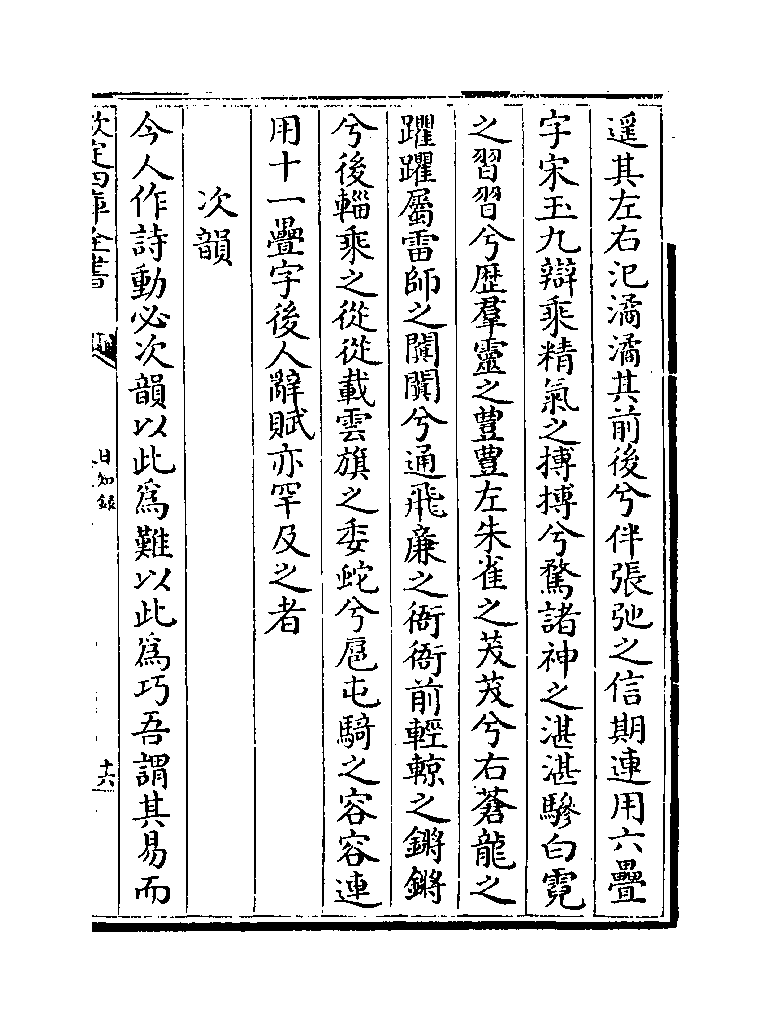 遥其左右氾潏潏其前後兮伴張弛之信期連用六疊
字宋玉九辯乘精氣之摶摶兮騖諸神之湛湛驂白霓
之習習兮歴羣靈之豐豐左朱雀之茇茇兮右蒼龍之
躍躍屬雷師之闐闐兮通飛廉之衙衙前輕輬之鏘鏘
兮後輜乘之從從載雲旗之委蛇兮扈屯騎之容容連
用十一疊字後人辭賦亦罕及之者
次韻
今人作詩動必次韻以此為難以此為巧吾謂其易而
欽定四庫全書
日知錄
十六